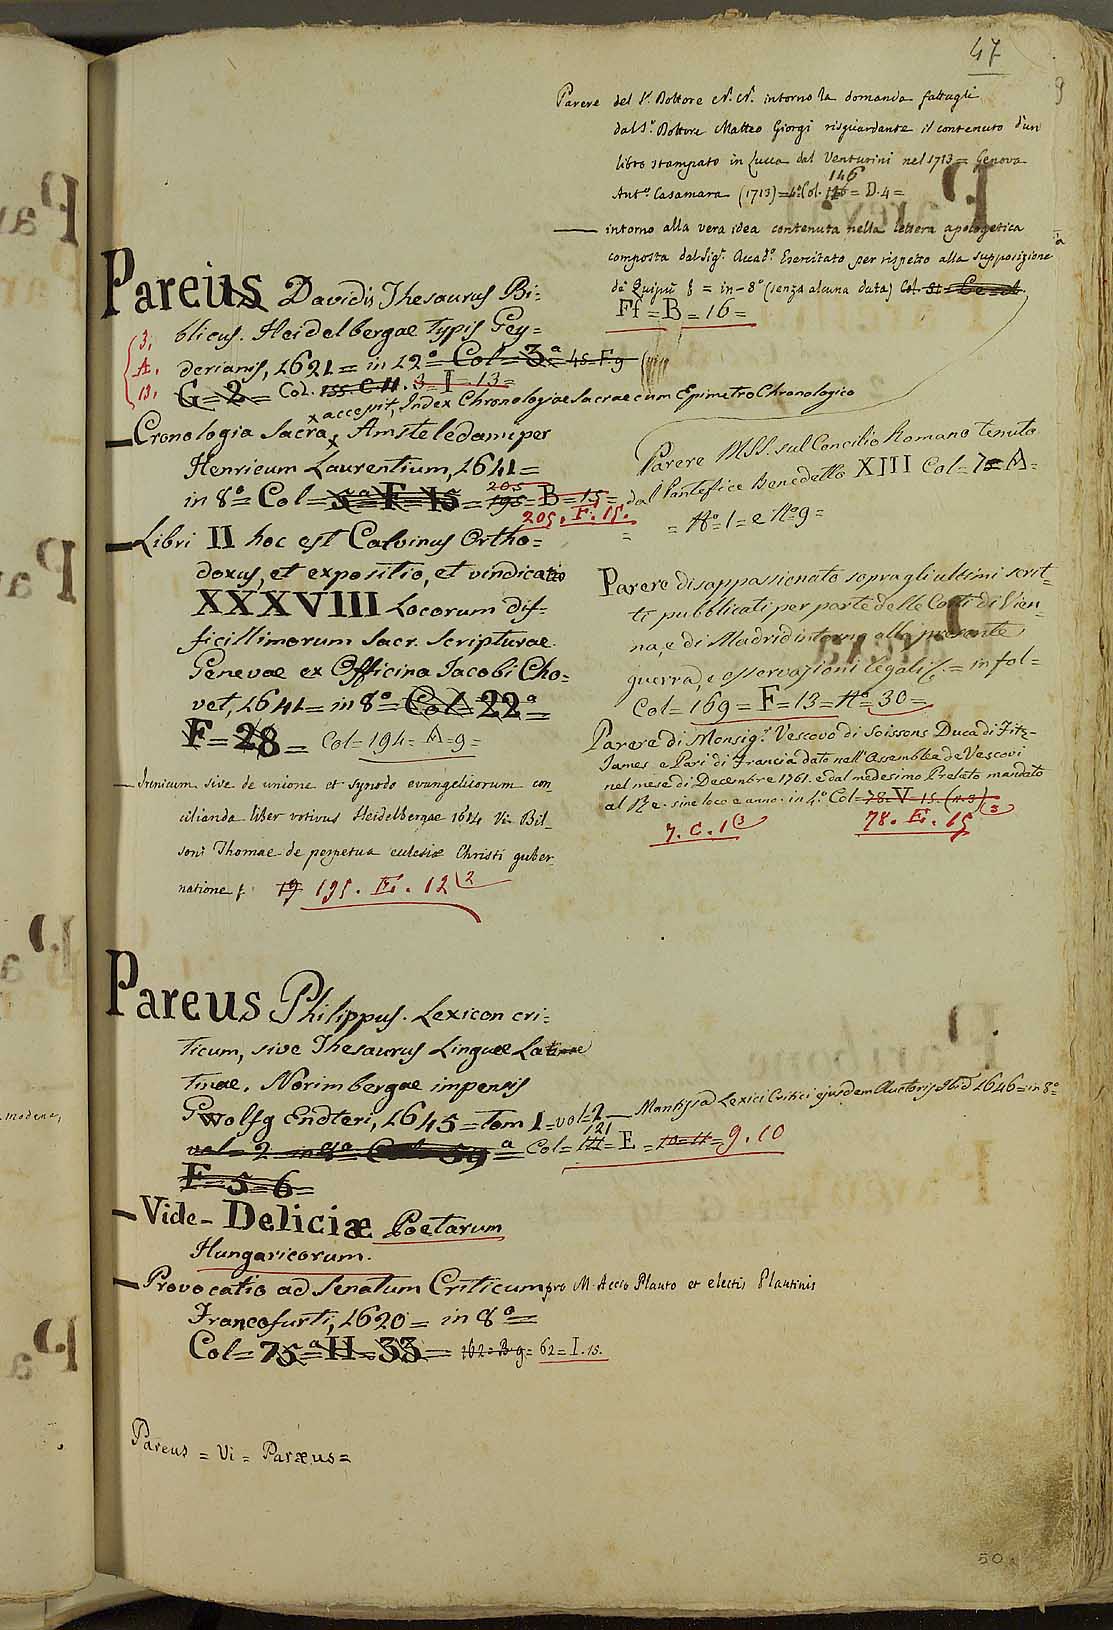 47
Parere del Sr. Dottore N. N. intorno la domanda fattagli
dal Sr. Dottore Matteo Giorgi risguardante il contenuto d'un
libro stampato in Lucca dal Venturini nel 1713 = Genova
146
Anto. Casamara (1713) = 4o. Col. = D. 4 =
— intorno alla vera idea contenuta nella lettera apologetica
composta dal Sigr. Accado. Esercitato per rispetto alla supposizione
de' Quipu = in = 8o (senza alcuna data)
Ff = B = 16 =
Pareus Davidis Thesaurus Bi=
blicus. Heidelbergae typis Gey=
derianis, 1621 = in 12o = Col = 3a 45 = F. 9
3.
A.
13.
G = 2 = Col. 155. C. 11. 3 = I = 13 =
x accepit, Index Chronologiae Sacrae cum Epimetro Chronologico
— Cronologia Sacra x Amsteledami per
Henricum Laurentium, 1641 =
205
in 8o = Col = 5a = F = 15 = 195 = B = 15 =
205. F. 15.
— Libri II hoc est Calvinus Ortho=
doxus, et expositio, et vindicatio
XXXVIII Locorum dif=
ficillimorum Sacr. Scripturae
Genevae ex Officina Jacobi Cho=
vet, 1641 = in 8o = Col = 22a =
F = 28 = Col = 194 = A = 9 =
— Irenicum sive de unione et synodo evangelicorum con
cilianda liber votivus Heidelbergae 1614 Vi. Bil_
soni Thomae de perpetua ecclesiae Christi guber_
natione f. 19 195. E. 12 (2
Parere MSS. sul Concilio Romano tenuto
dal Pontefice Benedetto XIII Col = 7 = A =
= No = 1 = e No 9 =
Parere disappassionato sopra gli ultimi scrit_
ti pubblicati per parte delle Corti di Vien_
na, e di Madrid intorno alla presente
guerra, e osservazioni legali f. = in fol =
Col = 169 = F = 13 = No = 30 =
Parere di Monsigr. Vescovo di Soissons Duca di Fitz=
James e Pari di Francia dato nell'Assemblea de Vescovi
nel mese di Decembre 1761. e dal medesimo Prelato mandato
al Re. sine loco e anno. in 4o. Col = 78. V = 15. (n. 3)
7. C. 1 (3 78. E. 15 (3
Pareus Philippus. Lexicon cri=
ticum, sive Thesaurus Linguae La
tinae. Norimbergae impensis
Wolfg Endteri, 1645 = Tom 1 = vol = 2 — Mantissa Lexici Critici ejusdem Auctoris Ibid 1646 = in 8o =
121
vol = 2 in 8o Col 59a = Col = = E = 10 = 11 = 9. 10
F = 5 = 6 =
— Vide - Deliciæ Poetarum
Hungaricorum.
— Provocatio ad Senatum Criticum pro M. Accio Plauto et electis Plautinis
Francofurti, 1620 = in 8o =
Col = 75a = H = 33 = 162 = B 9 = 62 = I. 15.
Pareus = Vi = Paræus =
modena,
50